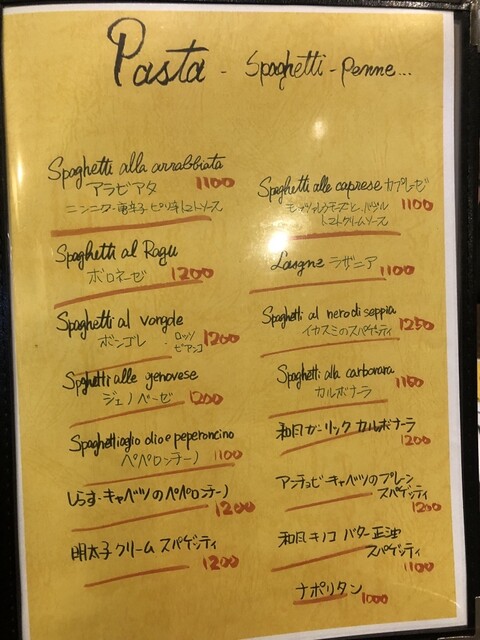 Pasta - Spaghetti - Penne...
Spaghetti alla arrabbiata
アラビアタ 1100
ニンニク・唐辛子 ピリ辛トマトソース
Spaghetti al Ragu
ボロネーゼ 1200
Spaghetti al vongole
ボンゴレ ・ロッソ ビアンコ 1200
Spaghetti alle genovese
ジェノベーゼ 1200
Spaghetti aglio olio e peperoncino
ペペロンチーノ 1100
しらす・キャベツのペペロンチーノ
1200
明太子クリームスパゲッティ
1200
Spaghetti alle caprese カプレーゼ
モッツァレラチーズと、バジル 1100
トマトクリームソース
Lasagne ラザニア
1100
Spaghetti al nero di seppia
イカスミのスパゲッティ 1250
Spaghetti alla carbonara
カルボナーラ 1100
和風ガーリックカルボナーラ
1200
アンチョビ・キャベツのプレーン
スパゲッティ
1200
和風キノコバター正油
スパゲッティ
1100
ナポリタン 1000